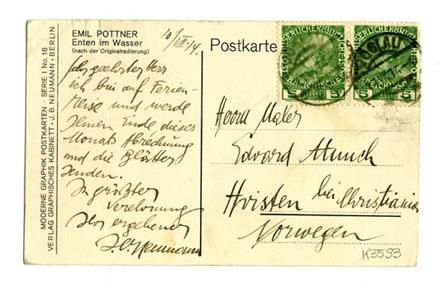 EMIL POTTNER
Enten im Wasser
(nach der Originalradierung)
Postkarte
10/VII 14.
Sehr geehrter Herr
ich bin auf Ferien-
reise und werde
Ihnen Ende dieses
Monats Abrechnung
und die Blätter
senden.
In größter
Verehrung
Ihr ergebener
J.B. Neumann
Herrn Maler
Edvard Munch
Hvisten bei Christiania
Norwegen
K3593
MODERNE GRAPHIK POSTKARTEN - SERIE I No. 18
VERLAG GRAPHISCHES KABINETT · J. B. NEUMANN · BERLIN
5 5
IGLAU